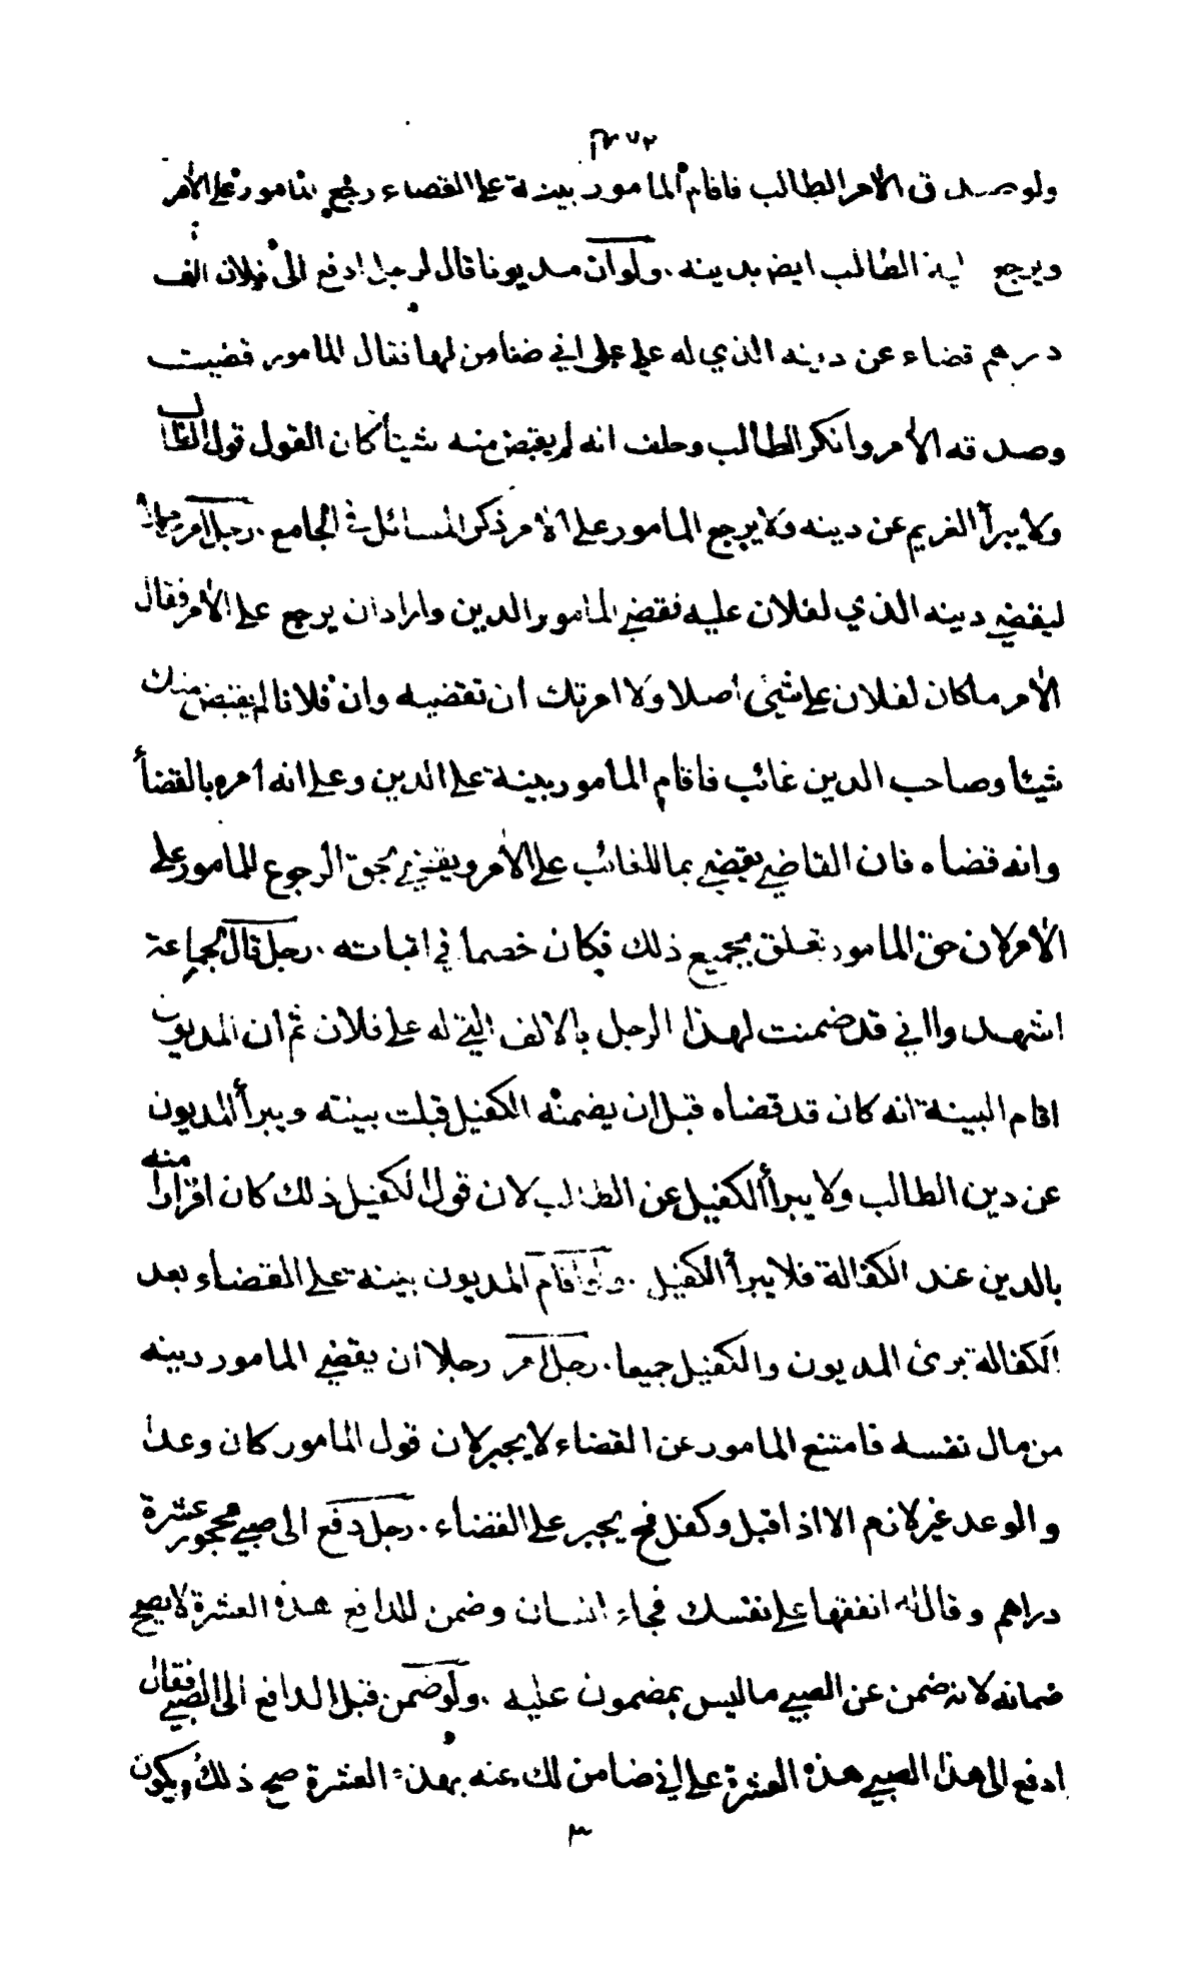 ولو صدق الآمر الطالب فاقام المامور بينة على القضاء رجع المامور على الآمر
ويرجع الطالب ايضا بدينه . ولو ان مديونا قال لرجل ادفع الى فلان الف
درهم قضاء عن دينه الذي له علي على اني ضامن لها فقال المامور قضيت
وصدقه الآمر وانكر الطالب وحلف انه لم يقبض منه شيئا كان القول قول الطالب
ولا يبرأ الغريم عن دينه ولا يرجع المامور على الآمر ذكر المسائل في الجامع . رجل امر رجلا
ليقضي دينه الذي لفلان عليه فقضى المامور الدين واراد ان يرجع على الآمر فقال
الآمر ما كان لفلان علي شئ أصلا ولا امرتك ان تقضيه وان فلانا لم يقبض منك
شيئا وصاحب الدين غائب فاقام المامور بينة على الدين وعلى انه أمره بالقضأ
وانه قضاه فان القاضي يقضي بما للغائب على الآمر ويقضي بحق الرجوع للمامور على
الآمر لان حق المامور تعلق بجميع ذلك فكان خصما في اثباته . رجل قال لجماعة
اشهدوا اني قد ضمنت لهذا الرجل بالالف التي له على فلان ثم ان المديون
اقام البينة انه كان قد قضاه قبل ان يضمنه الكفيل قبلت بينته ويبرأ المديون
عن دين الطالب ولا يبرأ الكفيل عن الطالب لان قول الكفيل ذلك كان اقرارا منه
بالدين عند الكفالة فلا يبرأ الكفيل . ولو اقام المديون بينة على القضاء بعد
الكفالة برئ المديون والكفيل جميعا . رجل امر رجلا ان يقضي المامور دينه
من مال نفسه فامتنع المامور عن القضاء لا يجبر لان قول المامور كان وعدا
والوعد غير لازم الا اذا قبل وكفل فح يجبر على القضاء . رجل دفع الى صبي محجور عشرة
دراهم وقال له انفقها على نفسك فجاء انسان وضمن للدافع هذه العشرة لا يصح
ضمانه لانه ضمن عن الصبي ما ليس بمضمون عليه . ولو ضمن قبل الدافع الى الصبي فقال
ادفع الى هذا الصبي هذه العشرة على اني ضامن لك عنه بهذه العشرة صح ذلك ويكون
٣